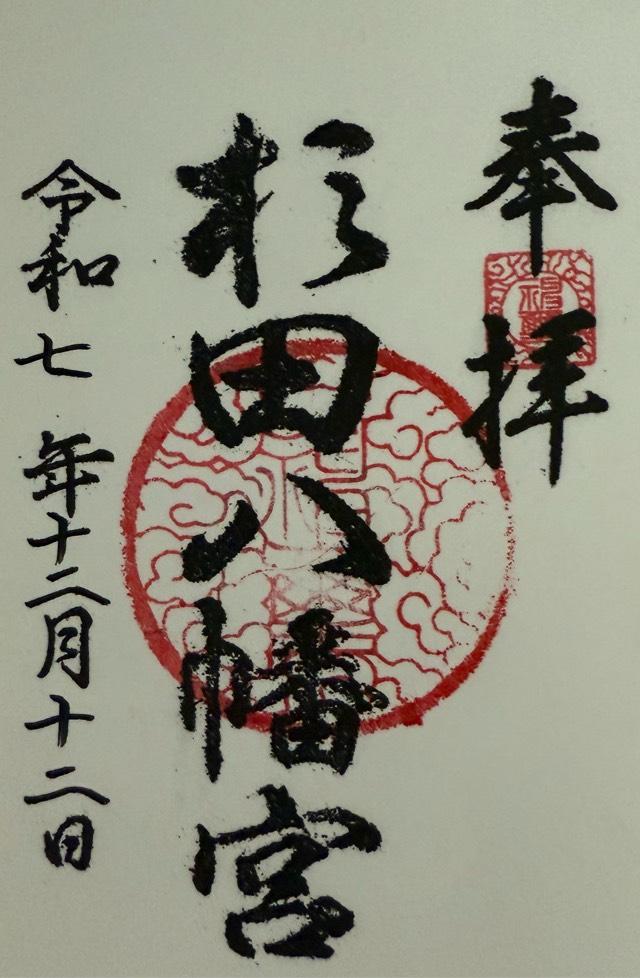 奉拝
杉田八幡宮
令和七年十二月十二日